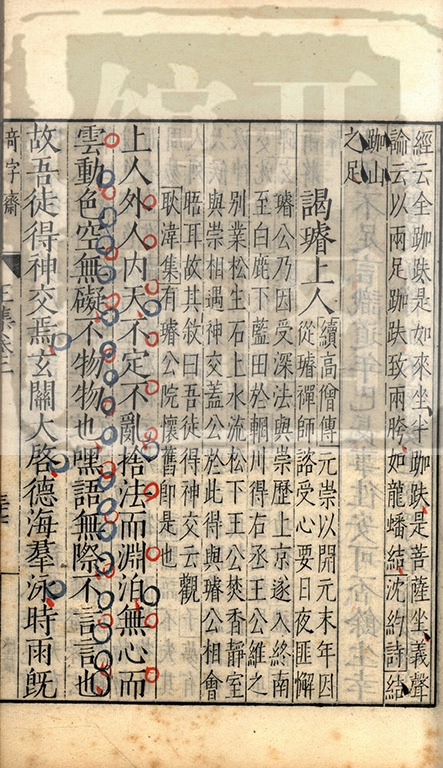 經云全跏趺是如來坐半跏趺是菩薩坐義聲
論云以兩足跏趺致兩胯如龍蟠結沈約詩結
跏山
之足
謁璿上人
續高僧傳元崇以開元末年因
從璿禪師諮受心要日夜匪懈
璿公乃因受深法與崇歷上京遂入終南
至白鹿下藍田於輞川得右丞王公維之
別業松生石上水流松下王公焚香靜室
與崇相遇神交蓋公於此得與璿公相會
晤耳故其敘曰吾徒得神交云觀
耿湋集有璿公院懷舊即是也
上人外人內天不定不亂捨法而淵泊無心而
雲動色空無礙不物物也默語無際不言言也
故吾徒得神交焉玄關大啓德海羣泳時雨既
奇字齋
王集卷二